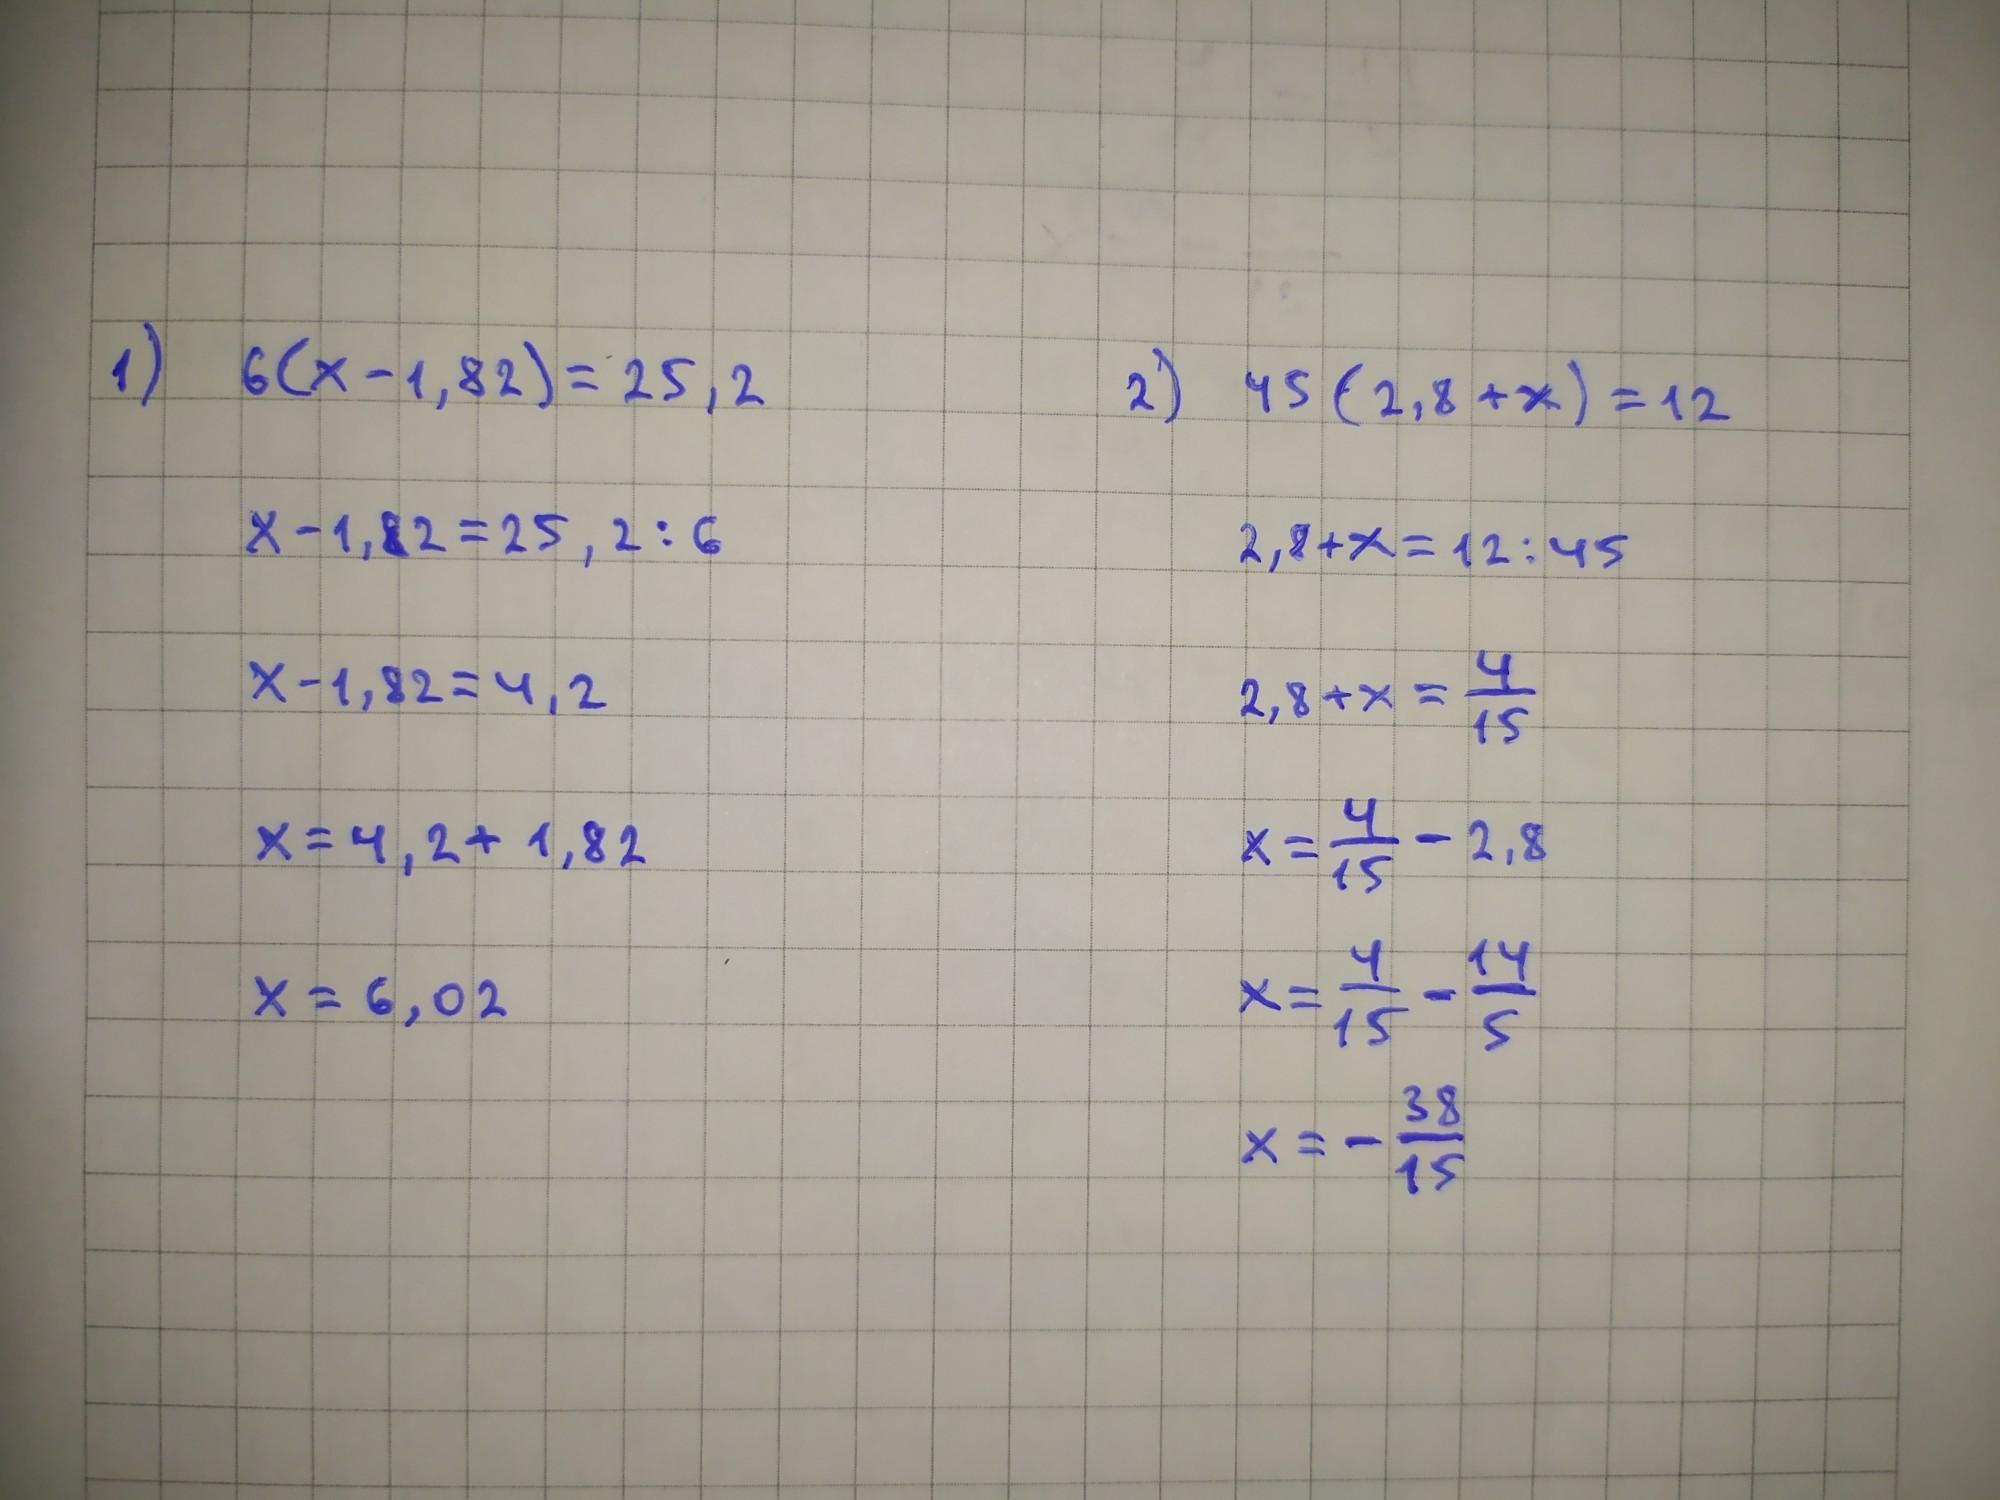 1) 6(x-1,82)=25,2
x-1,82=25,2:6
x-1,82=4,2
x=4,2+1,82
x=6,02
2) 45(2,8+x)=12
2,8+x=12:45
2,8+x=4/15
x=4/15-2,8
x=4/15-14/5
x=-38/15